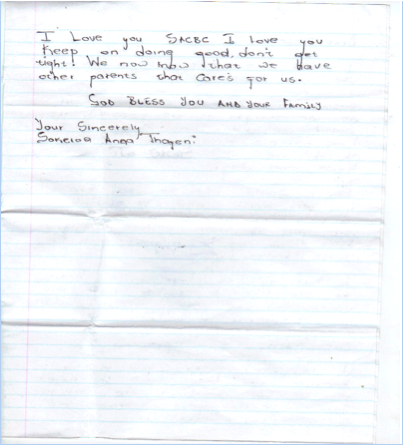 I Love you SACBC I love you
Keep on doing good, don't get
tight! We now know that we have
other parents that cares for us.
GOD BLESS YOU AND YOUR FAMILY
Your Sincerely